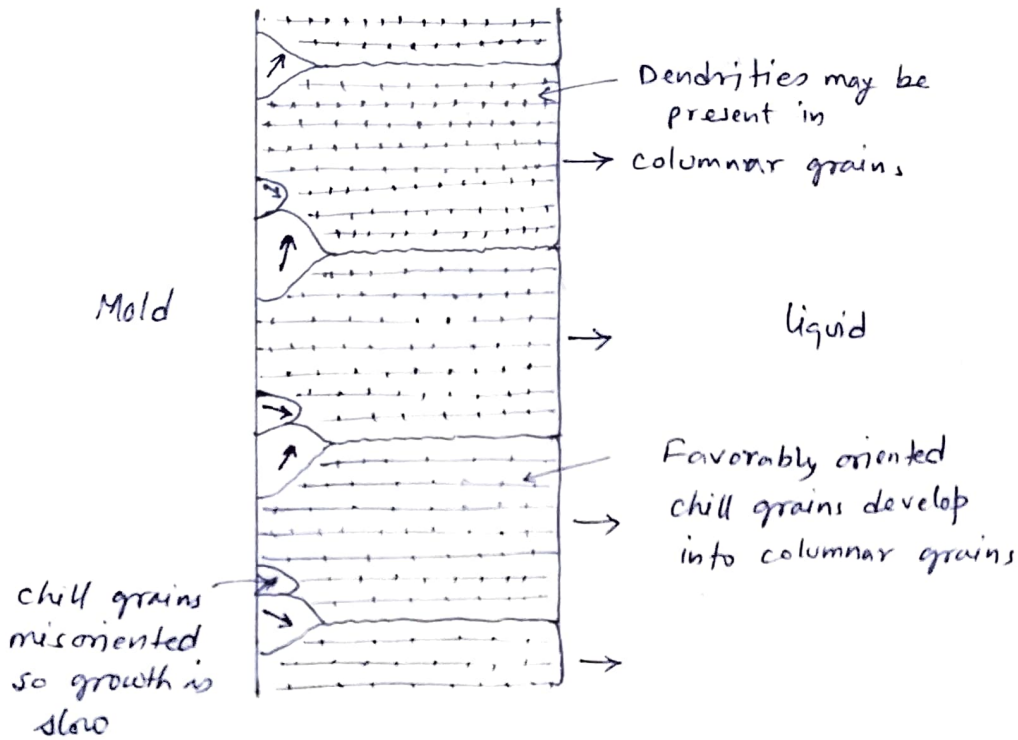 Dendrities may be
present in
columnar grains.
Mold
liquid
Favorably oriented
chill grains develop
into columnar grains
chill grains
misoriented
so growth is
slow